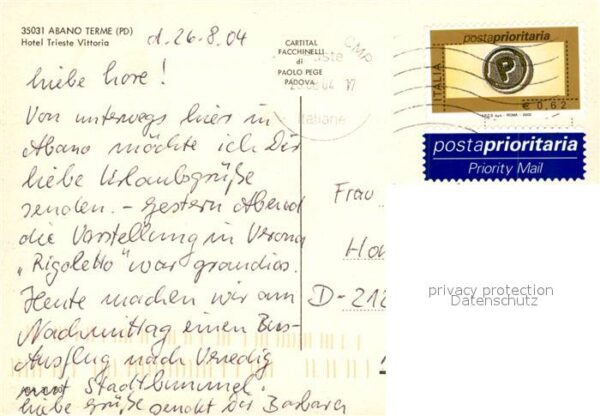 35031 ABANO TERME (PD)
Hotel Trieste Vittoria
d. 26.8.04
CARTITAL
FACCHINELLI
di
PAOLO PEGE
PADOVA
CMP
liebe Lore!
Von unterwegs hier in
Abano möchte ich Dir
liebe Urlaubsgrüße
senden. – Gestern Abend
die Vorstellung in Verona
„Rigoletto" war grandios.
Heute machen wir am
Nachmittag einen Bus-
Ausflug nach Venedig
mit Stadtbummel.
liebe Grüße sendet Dir Barbara
postaprioritaria
ITALIA
P
€ 0,62
postaprioritaria
Priority Mail
Frau
D-212
privacy protection
Datenschutz